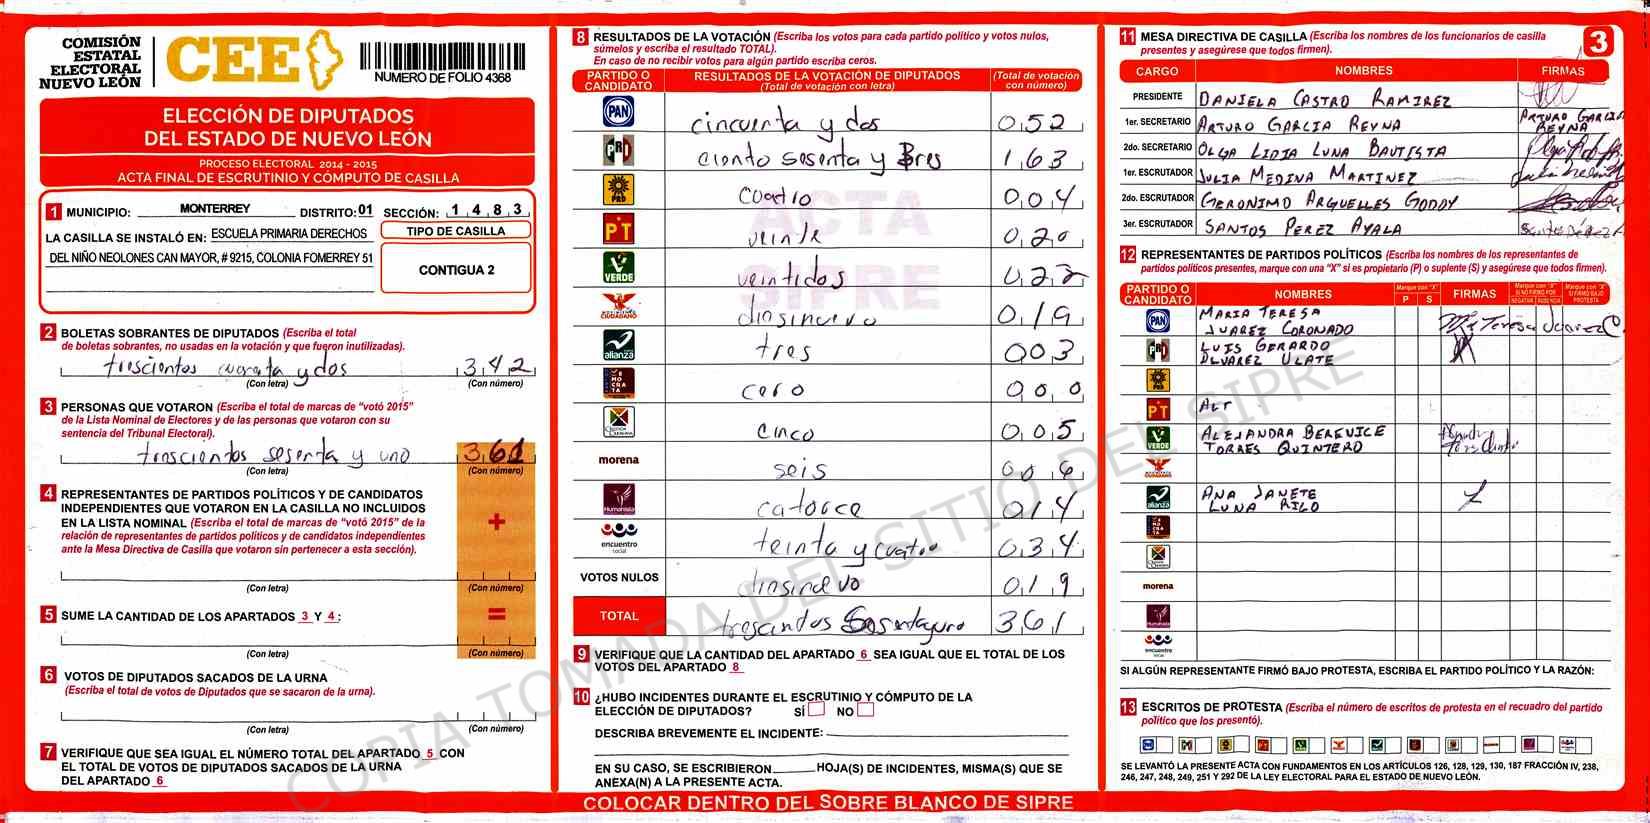 COMISIÓN
ESTATAL
ELECTORAL
NUEVO LEÓN
CEE
NUMERO DE FOLIO 4368
ELECCIÓN DE DIPUTADOS
DEL ESTADO DE NUEVO LEÓN
PROCESO ELECTORAL 2014 - 2015
ACTA FINAL DE ESCRUTINIO Y CÓMPUTO DE CASILLA
1 MUNICIPIO: MONTERREY DISTRITO: 01 SECCIÓN: 1 4 8 3
LA CASILLA SE INSTALÓ EN: ESCUELA PRIMARIA DERECHOS
DEL NIÑO NEOLONES CAN MAYOR, # 9215, COLONIA FOMERREY 51
TIPO DE CASILLA
CONTIGUA 2
2 BOLETAS SOBRANTES DE DIPUTADOS (Escriba el total
de boletas sobrantes, no usadas en la votación y que fueron inutilizadas).
trescientos cuarenta y dos 3 4 2
(Con letra) (Con número)
3 PERSONAS QUE VOTARON (Escriba el total de marcas de "votó 2015"
de la Lista Nominal de Electores y de las personas que votaron con su
sentencia del Tribunal Electoral).
trescientos sesenta y uno 361
(Con letra) (Con número)
4 REPRESENTANTES DE PARTIDOS POLÍTICOS Y DE CANDIDATOS
INDEPENDIENTES QUE VOTARON EN LA CASILLA NO INCLUIDOS
EN LA LISTA NOMINAL (Escriba el total de marcas de "votó 2015" de la
relación de representantes de partidos políticos y de candidatos independientes
ante la Mesa Directiva de Casilla que votaron sin pertenecer a esta sección).
+
(Con letra) (Con número)
5 SUME LA CANTIDAD DE LOS APARTADOS 3 Y 4:
=
(Con letra) (Con número)
6 VOTOS DE DIPUTADOS SACADOS DE LA URNA
(Escriba el total de votos de Diputados que se sacaron de la urna).
(Con letra) (Con número)
7 VERIFIQUE QUE SEA IGUAL EL NÚMERO TOTAL DEL APARTADO 5 CON
EL TOTAL DE VOTOS DE DIPUTADOS SACADOS DE LA URNA
DEL APARTADO 6
8 RESULTADOS DE LA VOTACIÓN (Escriba los votos para cada partido político y votos nulos,
súmelos y escriba el resultado TOTAL).
En caso de no recibir votos para algún partido escriba ceros.
PARTIDO O CANDIDATO RESULTADOS DE LA VOTACIÓN DE DIPUTADOS (Total de votación con letra) (Total de votación con número)
PAN cincuenta y dos 0 5 2
PRI ciento sesenta y tres 1 6 3
PRD cuatro 0 0 4
PT veinte 0 2 0
VERDE veintidos 0 2 2
CIUDADANO dinsinuevo 0 1 9
alianza tres 0 0 3
DEMOCRATA cero 0 0 0
cinco 0 0 5
morena seis 0 0 6
Humanista catorce 0 1 4
encuentro social teinta y cuatro 0 3 4
VOTOS NULOS 0 1 9
TOTAL 3 6 1
9 VERIFIQUE QUE LA CANTIDAD DEL APARTADO 6 SEA IGUAL QUE EL TOTAL DE LOS
VOTOS DEL APARTADO 8
10 ¿HUBO INCIDENTES DURANTE EL ESCRUTINIO Y CÓMPUTO DE LA
ELECCIÓN DE DIPUTADOS? SÍ NO
DESCRIBA BREVEMENTE EL INCIDENTE:
EN SU CASO, SE ESCRIBIERON HOJA(S) DE INCIDENTES, MISMA(S) QUE SE
ANEXA(N) A LA PRESENTE ACTA.
COLOCAR DENTRO DEL SOBRE BLANCO DE SIPRE
11 MESA DIRECTIVA DE CASILLA (Escriba los nombres de los funcionarios de casilla
presentes y asegúrese que todos firmen).
3
CARGO NOMBRES FIRMAS
PRESIDENTE DANIELA CASTRO RAMIREZ
1er. SECRETARIO ARTURO GARCIA REYNA ARTURO GARCIA REYNA
2do. SECRETARIO OLGA LIDIA LUNA BAUTISTA
1er. ESCRUTADOR JULIA MEDINA MARTINEZ
2do. ESCRUTADOR GERONIMO ARGUELLES GODOY
3er. ESCRUTADOR SANTOS PEREZ AYALA Santos Pérez A
12 REPRESENTANTES DE PARTIDOS POLÍTICOS (Escriba los nombres de los representantes de
partidos políticos presentes, marque con una "X" si es propietario (P) o suplente (S) y asegúrese que todos firmen).
PARTIDO O CANDIDATO NOMBRES Marque con "X" P S FIRMAS Marque con "X" SI NO FIRMÓ POR NEGATIVA AUSENCIA Marque con "X" SI FIRMÓ BAJO PROTESTA
PAN MARIA TERESA
JUAREZ CORONADO Ma Teresa Juarez C
PRI LUIS GERARDO
ALVAREZ ULATE
PRD
PT ALT
VERDE ALEJANDRA BEREVICE
TORRES QUINTERO
alianza ANA JANETE
LUNA RICO
morena
Humanista
encuentro social
SI ALGÚN REPRESENTANTE FIRMÓ BAJO PROTESTA, ESCRIBA EL PARTIDO POLÍTICO Y LA RAZÓN:
13 ESCRITOS DE PROTESTA (Escriba el número de escritos de protesta en el recuadro del partido
político que los presentó).
SE LEVANTÓ LA PRESENTE ACTA CON FUNDAMENTOS EN LOS ARTÍCULOS 126, 128, 129, 130, 187 FRACCIÓN IV, 238,
246, 247, 248, 249, 251 Y 292 DE LA LEY ELECTORAL PARA EL ESTADO DE NUEVO LEÓN.
ACTA
SIPRE
COPIA TOMADA DEL SITIO DEL SIPRE